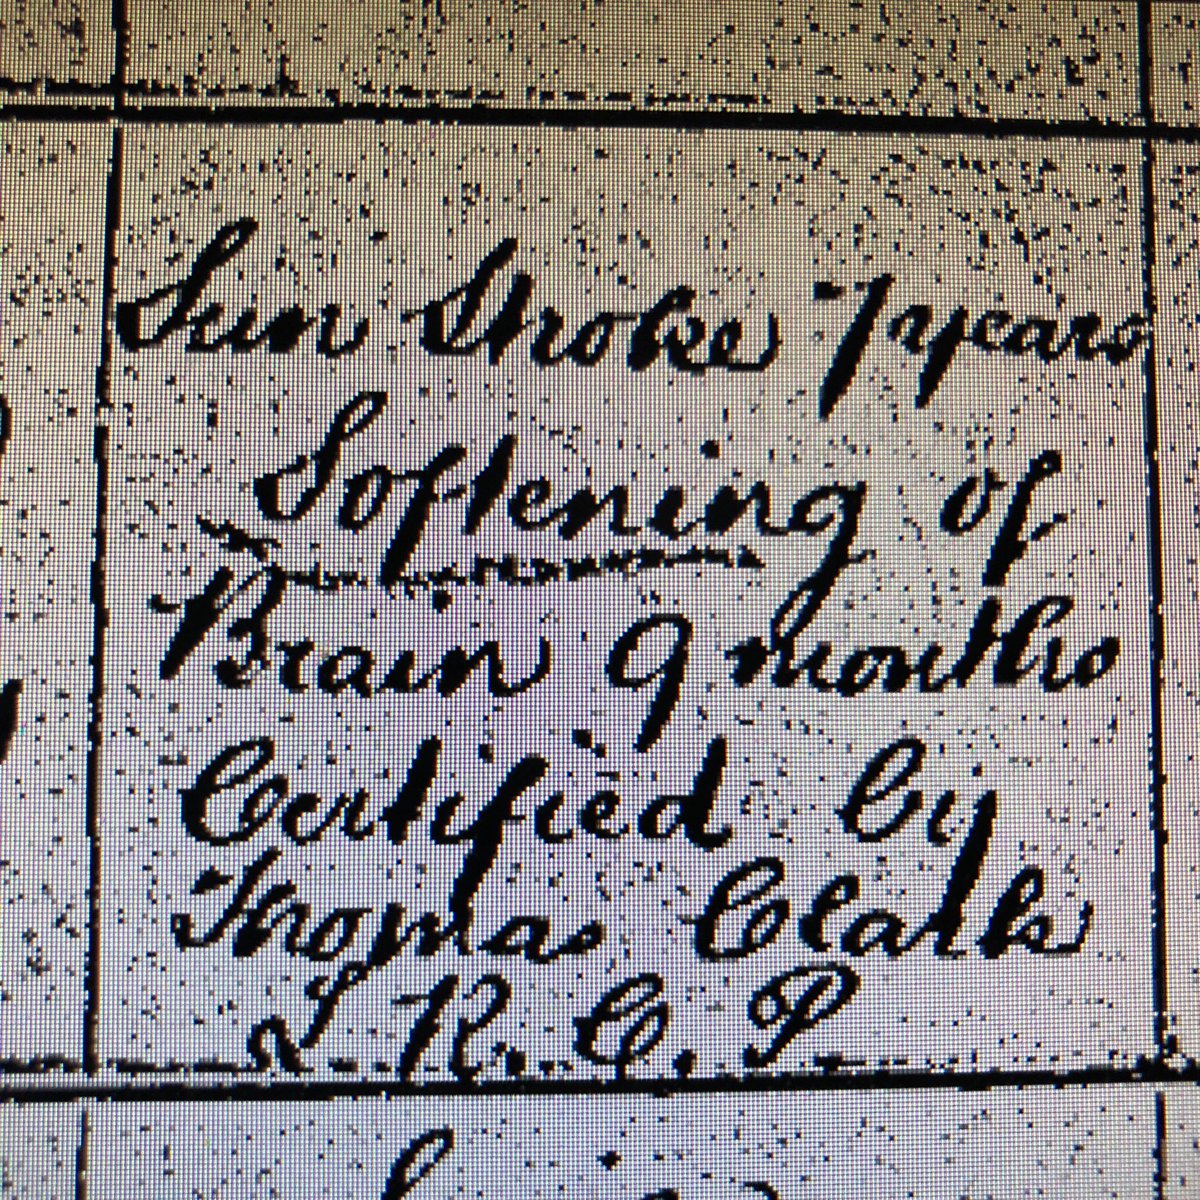 Sun Stroke 7 years
Softening of
Brain 9 months
Certified by
Thomas Clark
L R. C. P